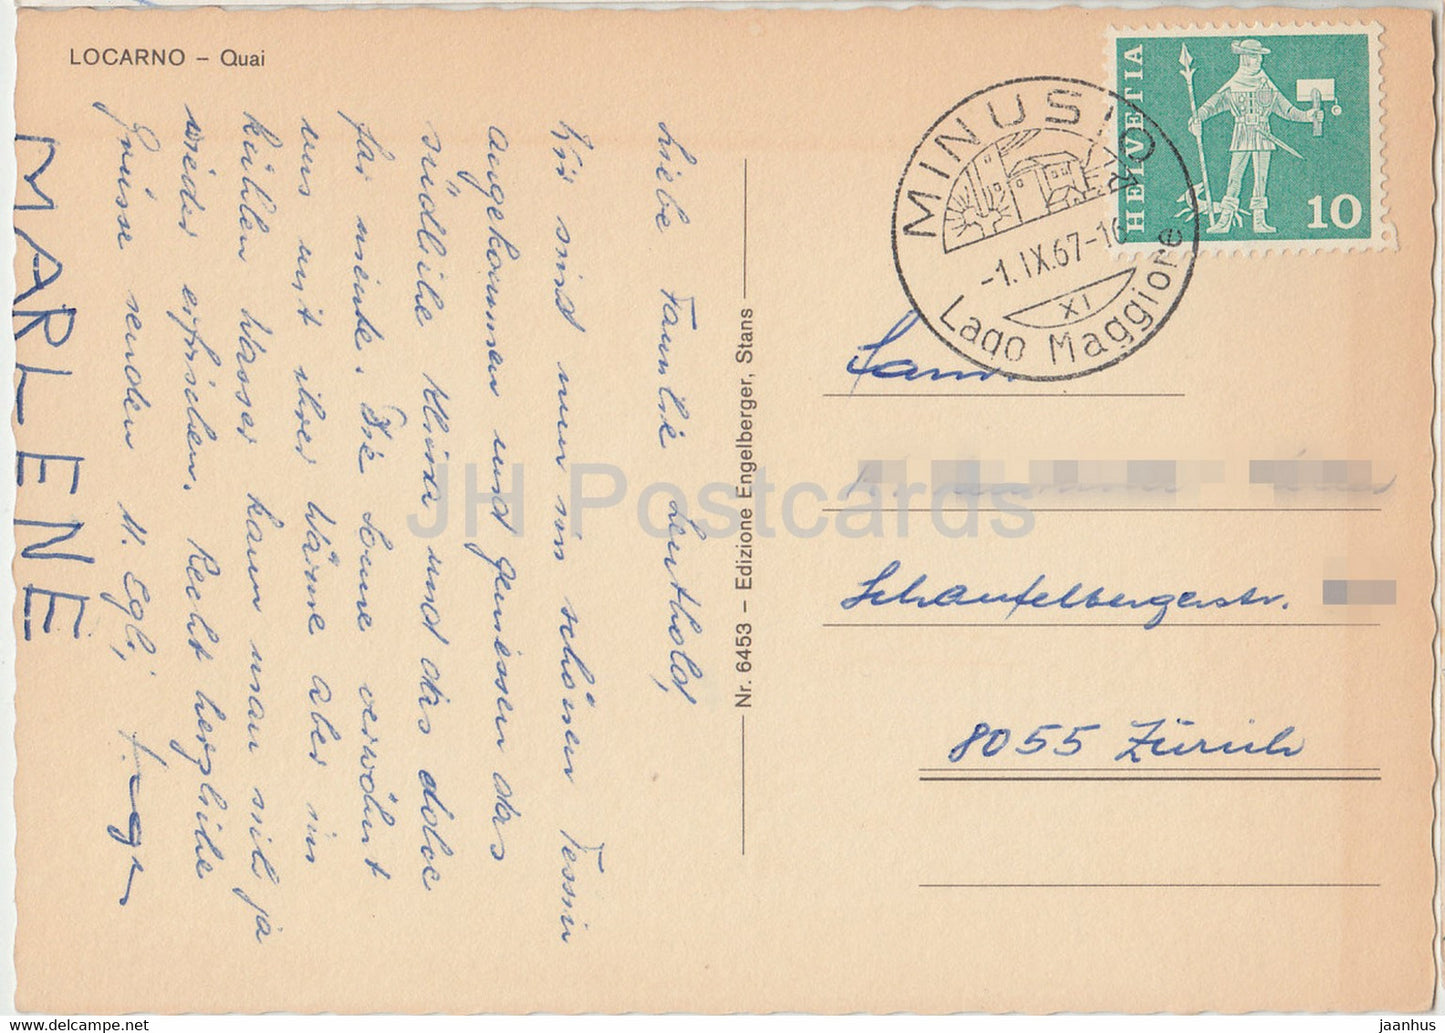 LOCARNO – Quai
Liebe Familie Leuthold,
Wir sind nun im schönen Tessin
angekommen und geniessen das
südliche Klima und das dolce
far niente. Die Sonne verwöhnt
uns mit ihrer Wärme aber im
kühlen Wasser kann man sich ja
wieder erfrischen. Recht herzliche
Grüsse senden H. Egli,
MARLENE
Nr. 6453 – Edizione Engelberger, Stans
HELVETIA
10
MINUSIO
-1.IX.67-16
XI
Lago Maggiore
Fam.
Schaufelbergerstr.
8055 Zürich
JH Postcards
www.delcampe.net
jaanhus